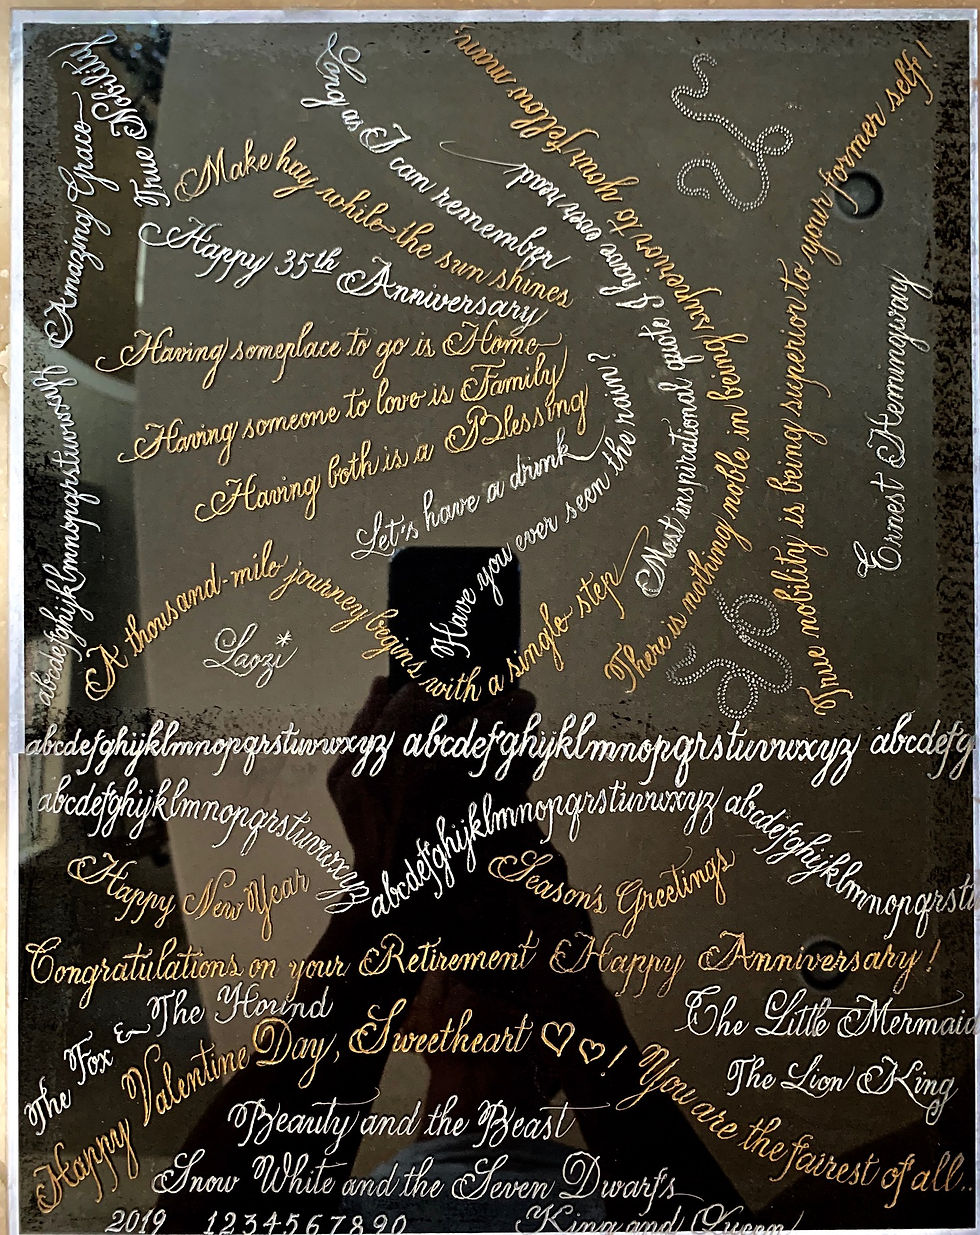 Amazing Grace
True Nobility
Long as I can remember
Make hay while the sun shines
Happy 35th Anniversary
Having someplace to go is Home
Having someone to love is Family
Having both is a Blessing
Let's have a drink
Have you ever seen the rain?
Most inspirational quote I have ever read
There is nothing noble in being superior to your fellow man.
True noblity is being superior to your former self!
Ernest Hemingway
A thousand-mile journey begins with a single step
Laozi*
abcdefghijklmnopqrstuvwxyz
abcdefghijklmnopqrstuvwxyz abcdefghijklmnopqrstuvwxyz abcdefg
abcdefghijklmnopqrstuvwxyz abcdefghijklmnopqrstuvwxyz abcdefghijklmnopqrst
Happy New Year
Season's Greetings
Congratulations on your Retirement Happy Anniversary!
The Fox & The Hound
The Little Mermaid
Happy Valentine Day, Sweetheart ♡♡! You are the fairest of all...
The Lion King
Beauty and the Beast
Snow White and the Seven Dwarfs
2019 1234567890
King and Queen